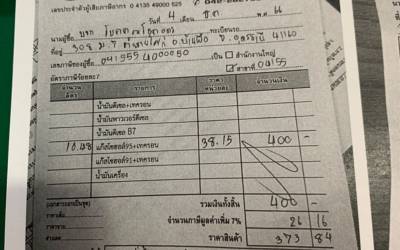 เลขประจำตัวผู้เสียภาษีอากร 0 4135 49000 525
วันที่ 4 พ.ศ. 66
นามผู้ซื้อ บจก.
ที่อยู่ 308 ม.7 41160
เลขภาษีของผู้ซื้อ 041555 4000050 เป็น สำนักงานใหญ่
สาขาที่ 04155
อัตราภาษีร้อยละ7
จำนวนลิตร รายการ ราคาหน่วยละ จำนวนเงิน
น้ำมันดีเซล+เทครอน
น้ำมันพาวเวอร์ดีเซล
น้ำมันดีเซล B7
10.48 แก๊สโซฮอล์95+เทครอน 38.15 400 -
แก๊สโซฮอล์91+เทครอน
น้ำมันเครื่อง
รวมเงินทั้งสิ้น 400 -
จำนวนภาษีมูลค่าเพิ่ม 7% 26 16
ราคาสินค้า 373 84